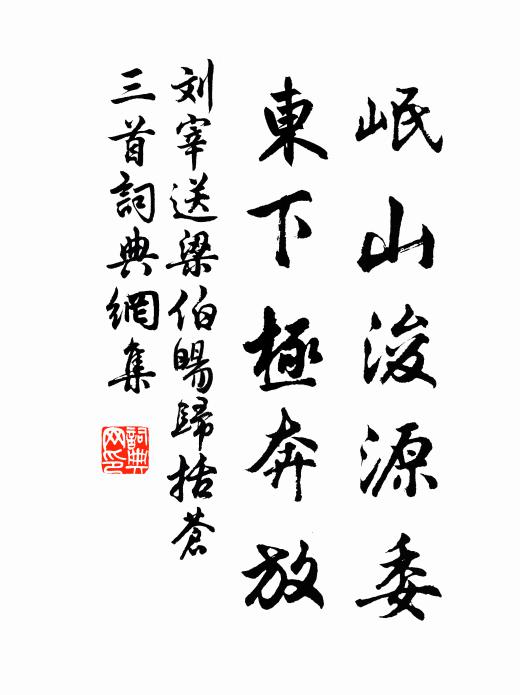 岷山浚源委
東下極奔放
刘宰送梁伯暘歸括蒼
三首詞典網集
詞典
网印